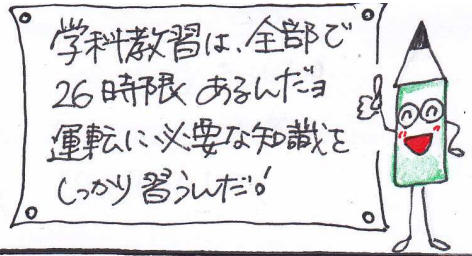 学科教習は、全部で
26時限あるんだョ
運転に必要な知識を
しっかり習うんだ!